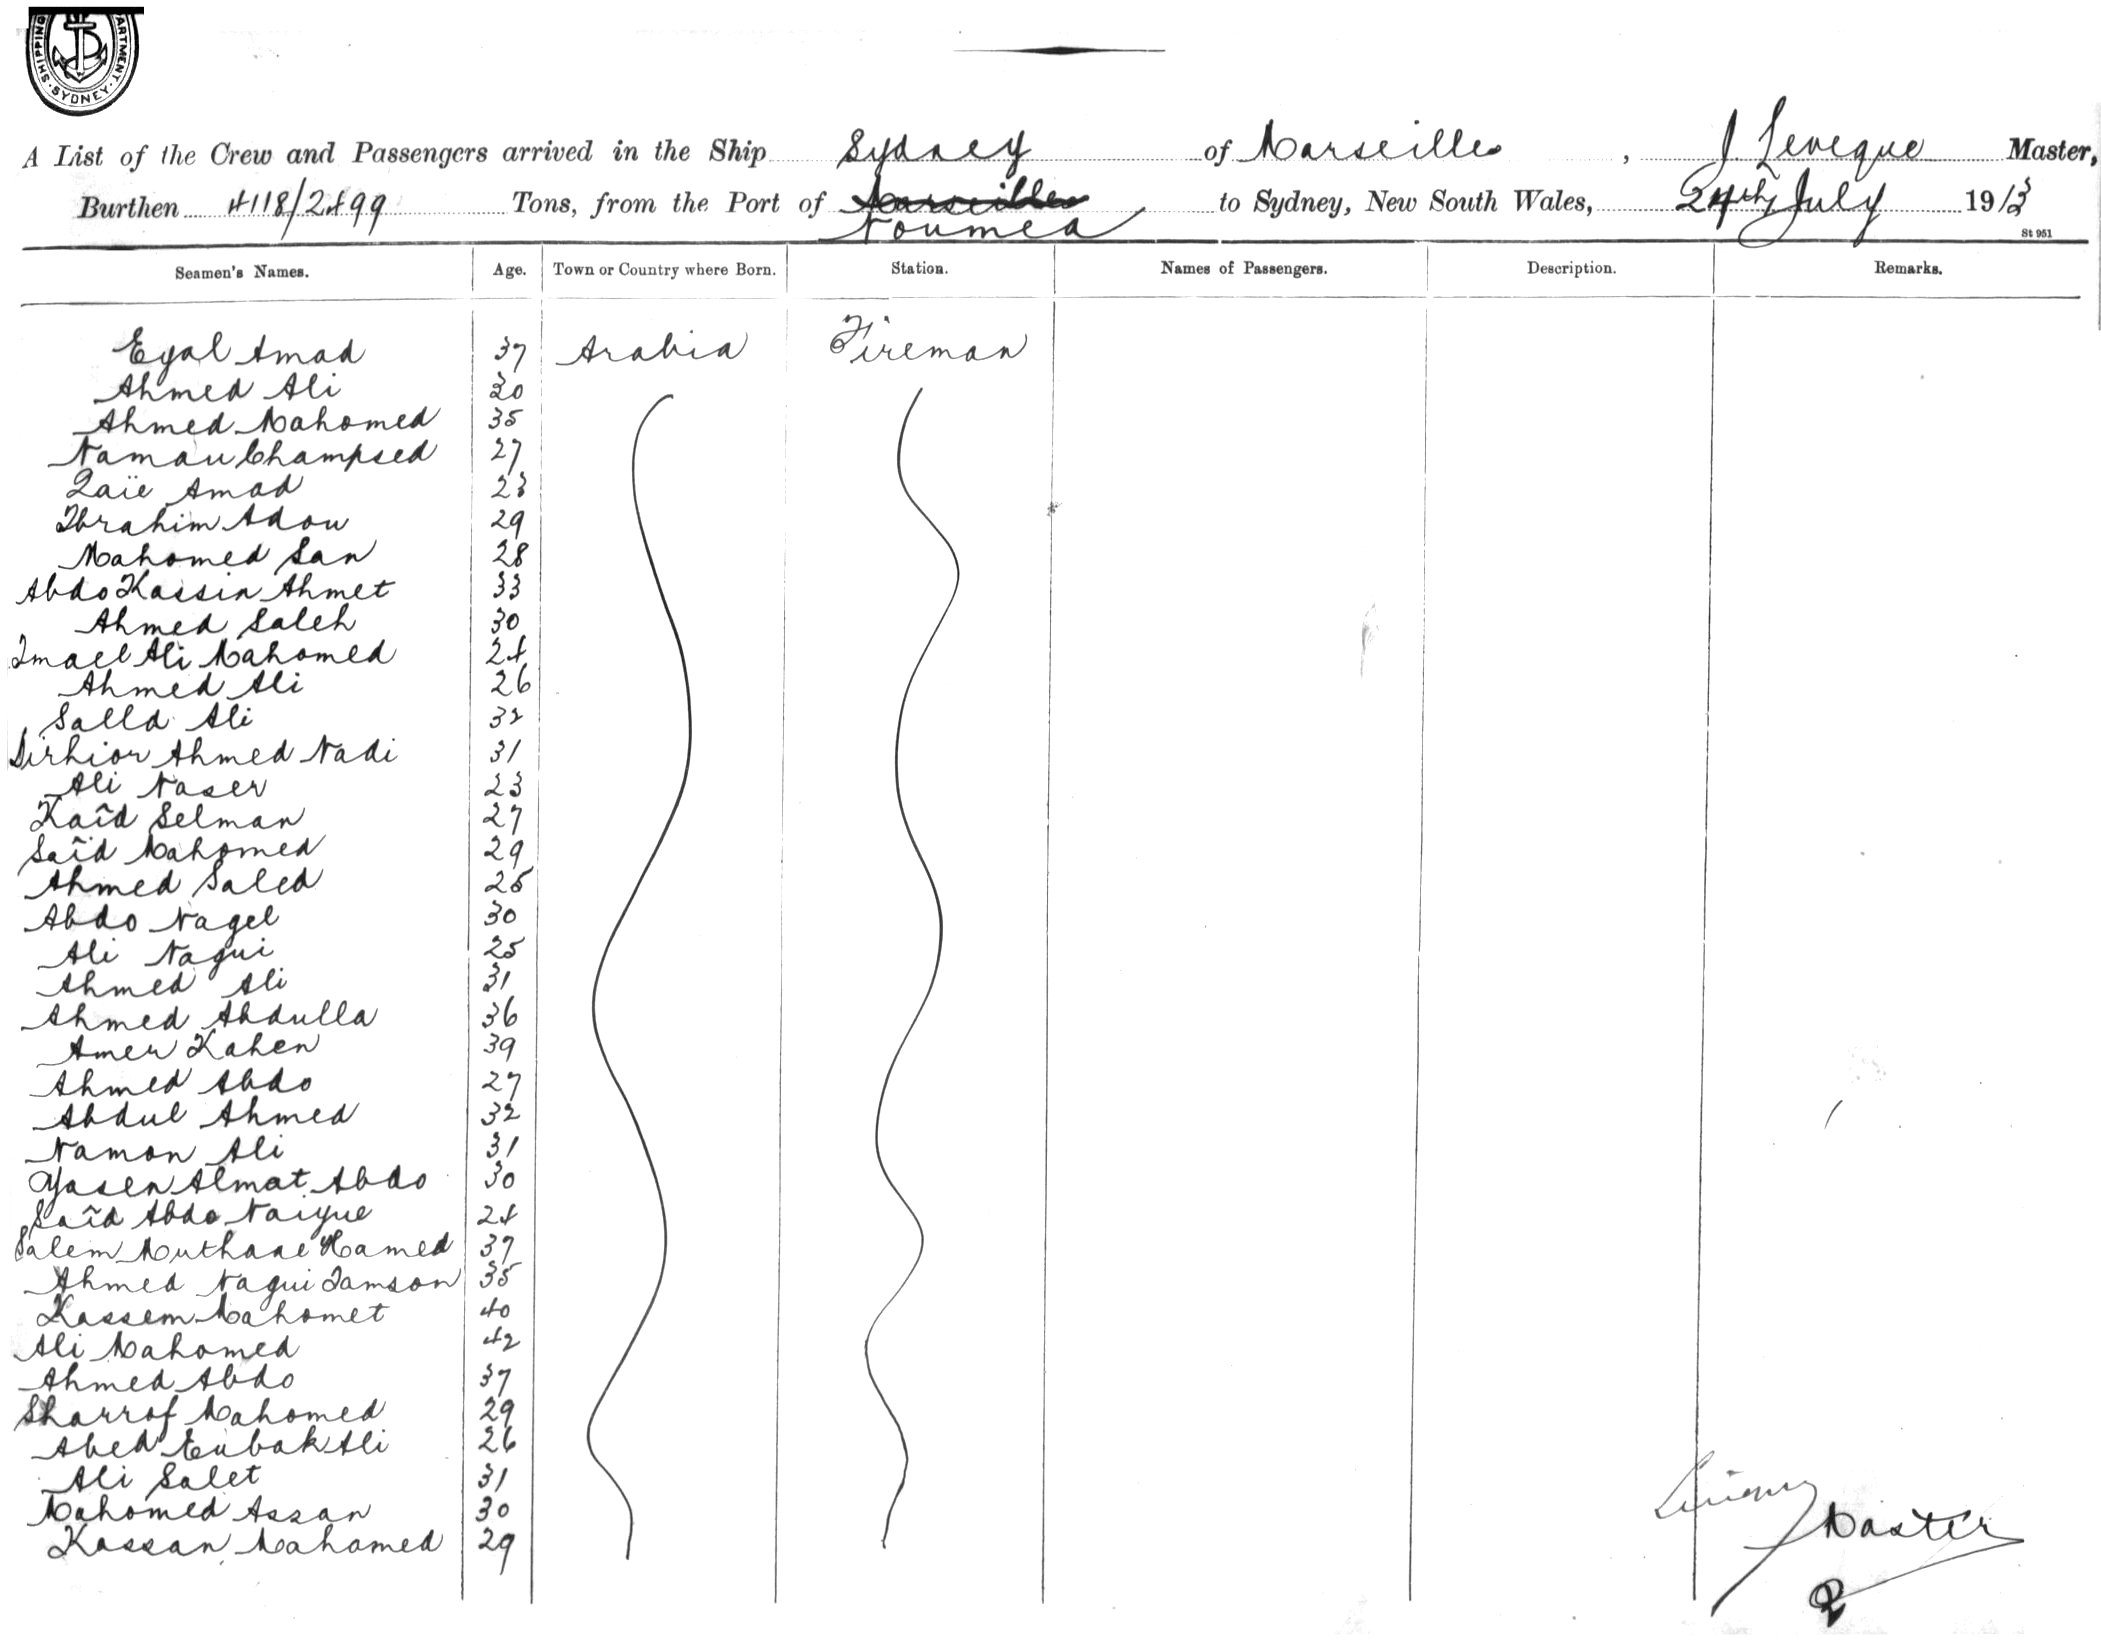 SHIPPING DEPARTMENT. SYDNEY.
A List of the Crew and Passengers arrived in the Ship Sydney of Marseilles, J. Leveque Master,
Burthen 4118/2499 Tons, from the Port of Marseilles Noumea to Sydney, New South Wales, 24th July 1913
St 951
Seamen's Names. Age. Town or Country where Born. Station. Names of Passengers. Description. Remarks.
Eyal Amad 37 Arabia Fireman
Ahmed Ali 30
Ahmed Mahomed 35
Namau Champsed 27
Zaïe Amad 23
Ibrahim Adou 29
Mahomed San 28
Abdo Kassin Ahmet 33
Ahmed Saleh 30
Imael Ali Mahomed 24
Ahmed Ali 26
Salld Ali 32
Dirhior Ahmed Nadi 31
Ali Naser 23
Kaîd Selman 27
Saîd Mahomed 29
Ahmed Saled 25
Abdo Nagel 30
Ali Nagui 25
Ahmed Ali 31
Ahmed Abdulla 36
Amer Kahen 39
Ahmed Abdo 27
Abdul Ahmed 32
Namon Ali 31
Yasen Almat Abdo 30
Saîd Abdo Naiyue 24
Salem Muthane Hamed 37
Ahmed Nagui Tamson 35
Kassem Mahomet 40
Ali Mahomed 42
Ahmed Abdo 37
Sharrof Mahomed 29
Abed Eubak Ali 26
Ali Salet 31
Mahomed Assan 30
Kassan Mahomed 29
Master